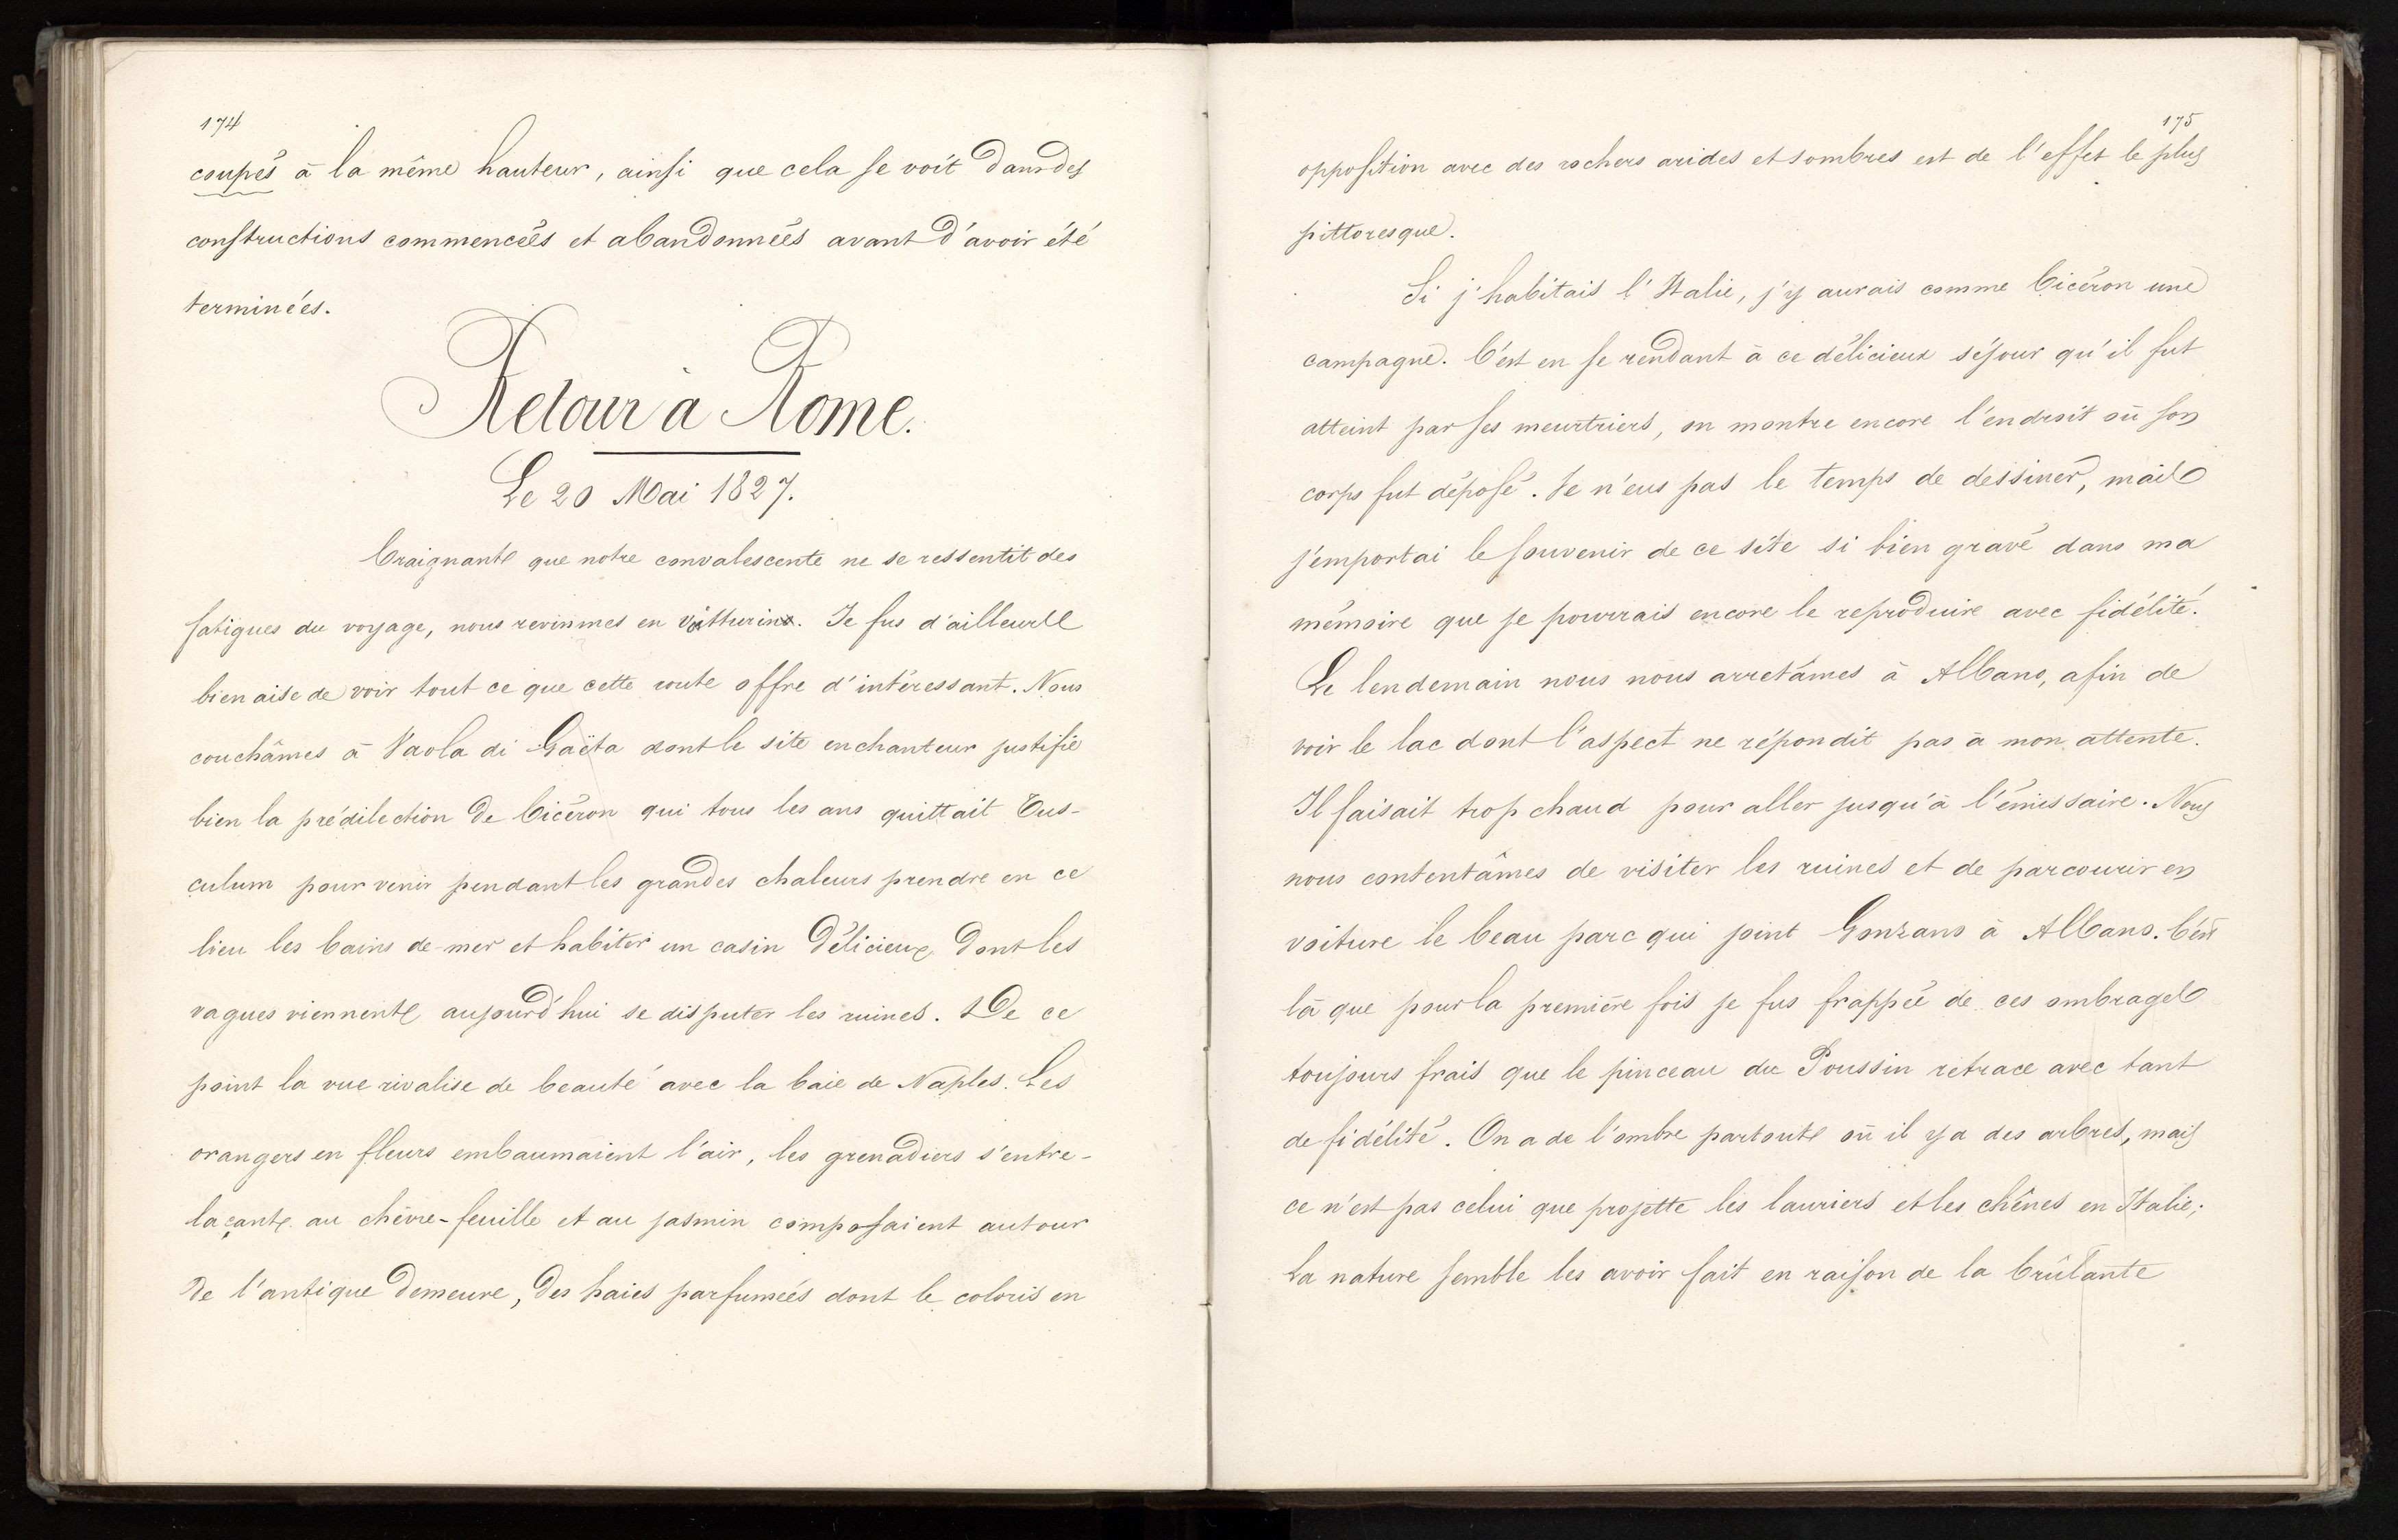 174
coupés à la même hauteur, ainsi que cela se voit dans des
constructions commencées et abandonnées avant d'avoir été
terminées.
Retour à Rome.
Le 20 Mai 1827.
Craignant que notre convalescente ne se ressentit des
fatigues du voyage, nous revinmes en vitturino. Je fus d'ailleurs
bien aise de voir tout ce que cette route offre d'intéressant. Nous
couchâmes à Paola di Gaëta dont le site enchanteur justifie
bien la prédilection de Cicéron qui tous les ans quittait Tus-
culum pour venir pendant les grandes chaleurs prendre en ce
lieu les bains de mer et habiter un casin délicieux dont les
vagues viennent aujourd'hui se disputer les ruines. De ce
point la vue rivalise de beauté avec la baie de Naples. Les
orangers en fleurs embaumaient l'air, les grenadiers s'entre-
laçant au chèvre-feuille et au jasmin composaient autour
de l'antique demeure, des haies parfumées dont le coloris en
175
opposition avec des rochers arides et sombres est de l'effet le plus
pittoresque.
Si j'habitais l'Italie, j'y aurais comme Cicéron une
campagne. C'est en se rendant à ce délicieux séjour qu'il fut
atteint par ses meurtriers, on montre encore l'endroit où son
corps fut déposé. Je n'eus pas le temps de dessiner, mais
j'emportai le souvenir de ce site si bien gravé dans ma
mémoire que je pourrais encore le reproduire avec fidélité.
Le lendemain nous nous arretâmes à Albano, afin de
voir le lac dont l'aspect ne répondit pas à mon attente.
Il faisait trop chaud pour aller jusqu'à l'émissaire. Nous
nous contentâmes de visiter les ruines et de parcourir en
voiture le beau parc qui joint Gonzano à Albano. C'est
là que pour la première fois je fus frappée de ces ombrages
toujours frais que le pinceau du Poussin retrace avec tant
de fidélité. On a de l'ombre partout où il y a des arbres, mais
ce n'est pas celui que projette les lauriers et les chênes en Italie;
La nature semble les avoir fait en raison de la brûlante